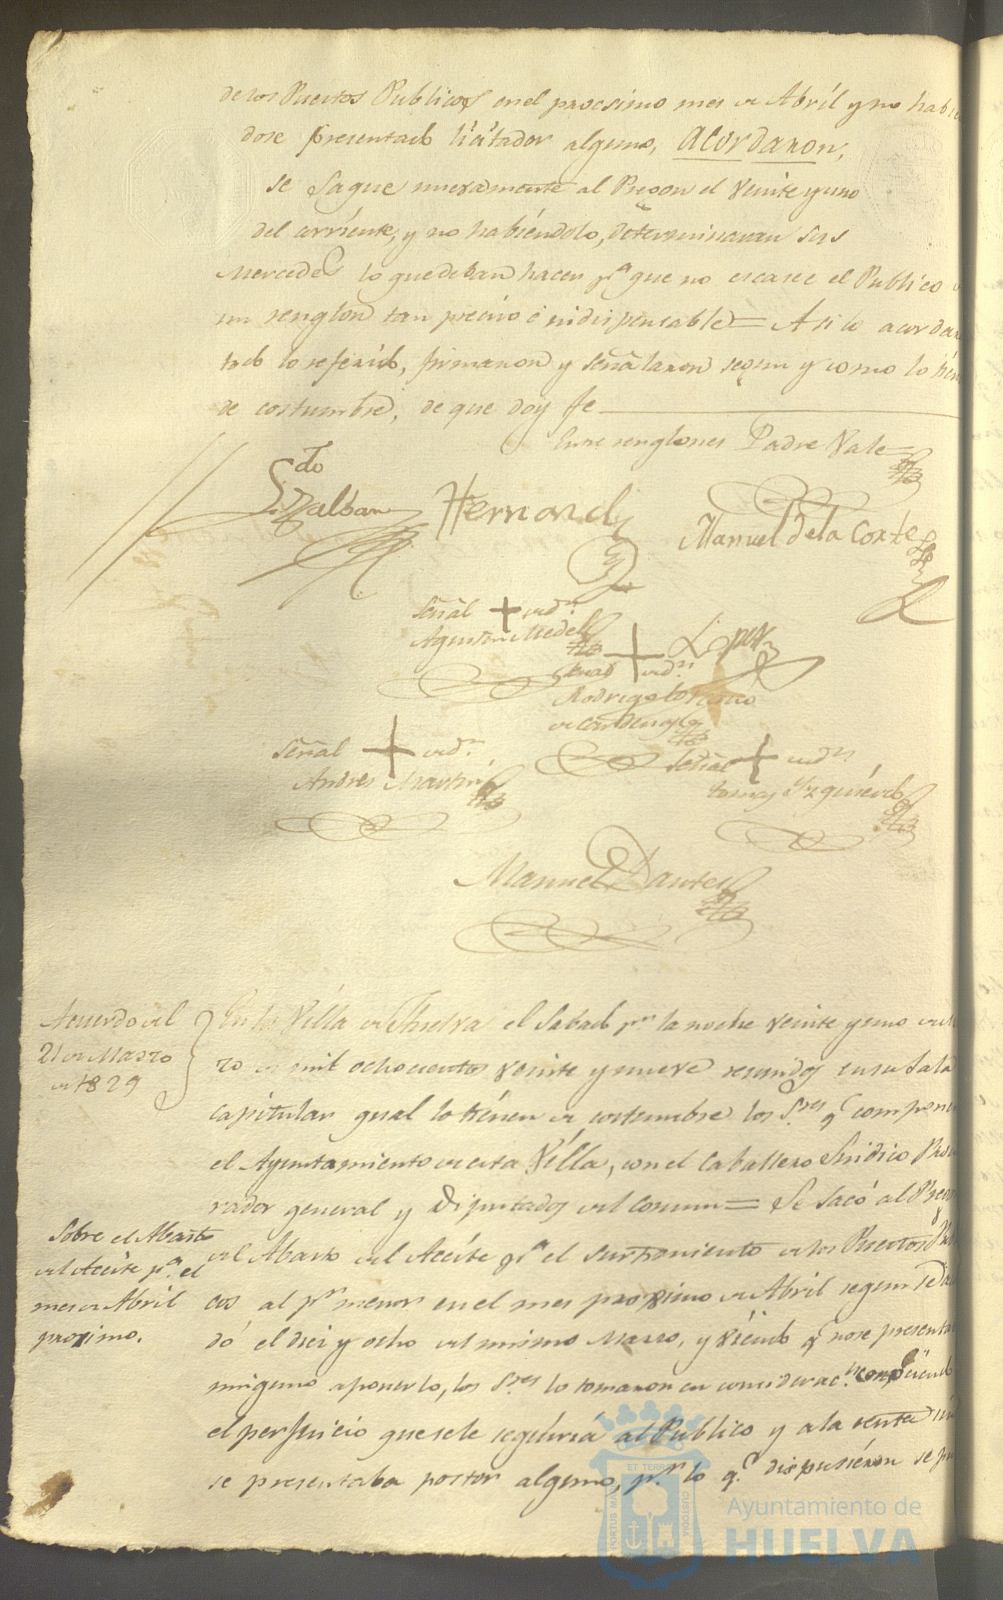 de los Puestos Publicos en el procsimo mes de Abril y no habien
dose presentado licitador alguno, acordaron,
se saque nuevamente al Pregon el veinte y uno
del corriente, y no habiéndolo, determinaran sus
Mercedes lo que deban hacer pa. que no escasee el Publico
un renglon tan preciso é indispensable = Asi lo acordaron
todo lo referido, firmaron y señalaron segun y como lo tienen
de costumbre, de que doy fe
Entre renglones Padre Vale =
Hernand
Manuel de la Corte
Señal + de dn.
Agustin Medel
Lopez
Señal + de dn.
Rodrigo
de Cardenas
Señal + de dn.
Andres Martin
Señal + de dn.
Tomas Yzquierdo
Manuel Dantes
Acuerdo del
21 de Marzo
de 1829
En la Villa de Huelva el Sabado pr. la noche veinte y uno de Mar
zo de mil ochocientos veinte y nueve reunidos en su Sala
capitular qual lo tienen de costumbre los Sres. q. componen
el Ayuntamiento de esta Villa, con el Caballero Sindico Procu
rador general y Diputados del comun = Se sacó al Pregon
Sobre el Abasto
del Aceite pa. el
mes de Abril
proximo.
el Abasto del Aceite pa. el surtimiento de los Puestos Publi
cos al pr. menor en el mes proximo de Abril segun se
dó el diez y ocho del mismo Marzo, y viendo q. no se presentaba
ninguno a ponerlo, los Sres. lo tomaron en consideracn.
el perjuicio que se le seguiria al Publico y a la renta
se presentaba postor alguno, pr. lo q. dispusieron se
PORTUS MARIS ET TERRAE CUSTODIA
Ayuntamiento de
HUELVA